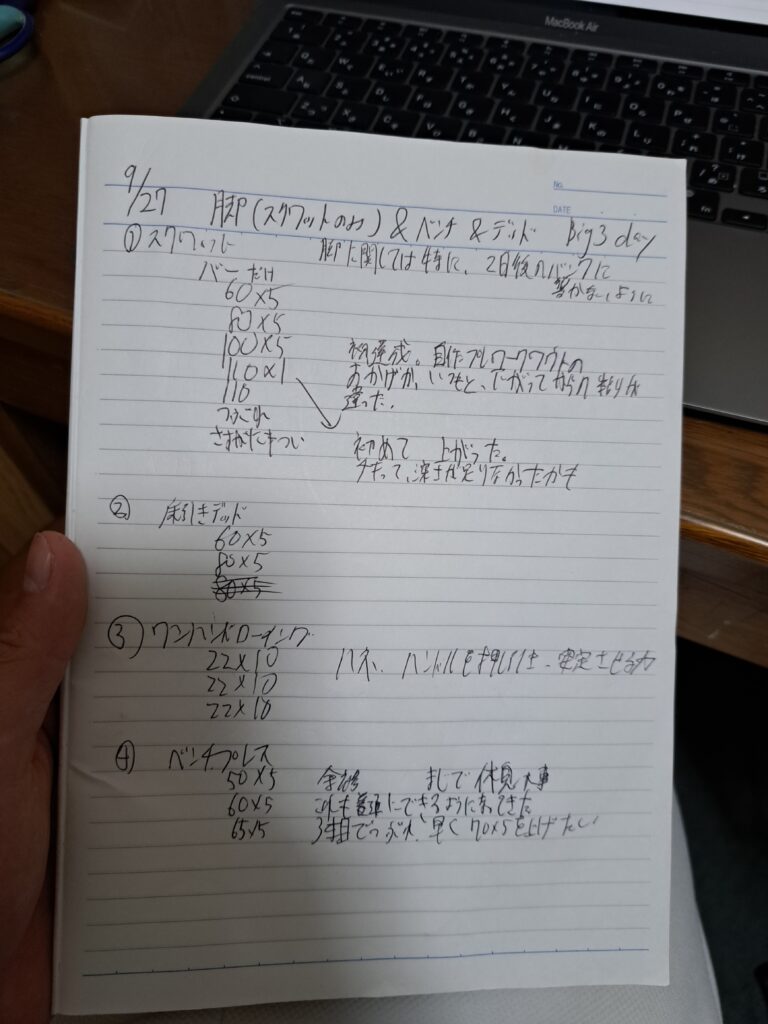 MacBook Air
No.
DATE
9/27 脚(スクワットのみ) & ベンチ & デッド Big3 day
① スクワット 脚に関しては特に、2日後の
バーだけ
60×5
80×5
100×5
110×1 初達成。自作プレワークアウトの
110 おかげか、いつもと、
違った。
さすがにきつい 初めて 上がった。
深さが足りなかったかも
② 床引きデッド
60×5
80×5
③ ワンハンドローイング
22×10 ハンドルを 安定させる力
22×10
22×10
④ ベンチプレス
50×5 余裕 まじで 休息大事
60×5 これも にできるようになってきた
65×5 でつぶれ、早く 70×5を上げたい